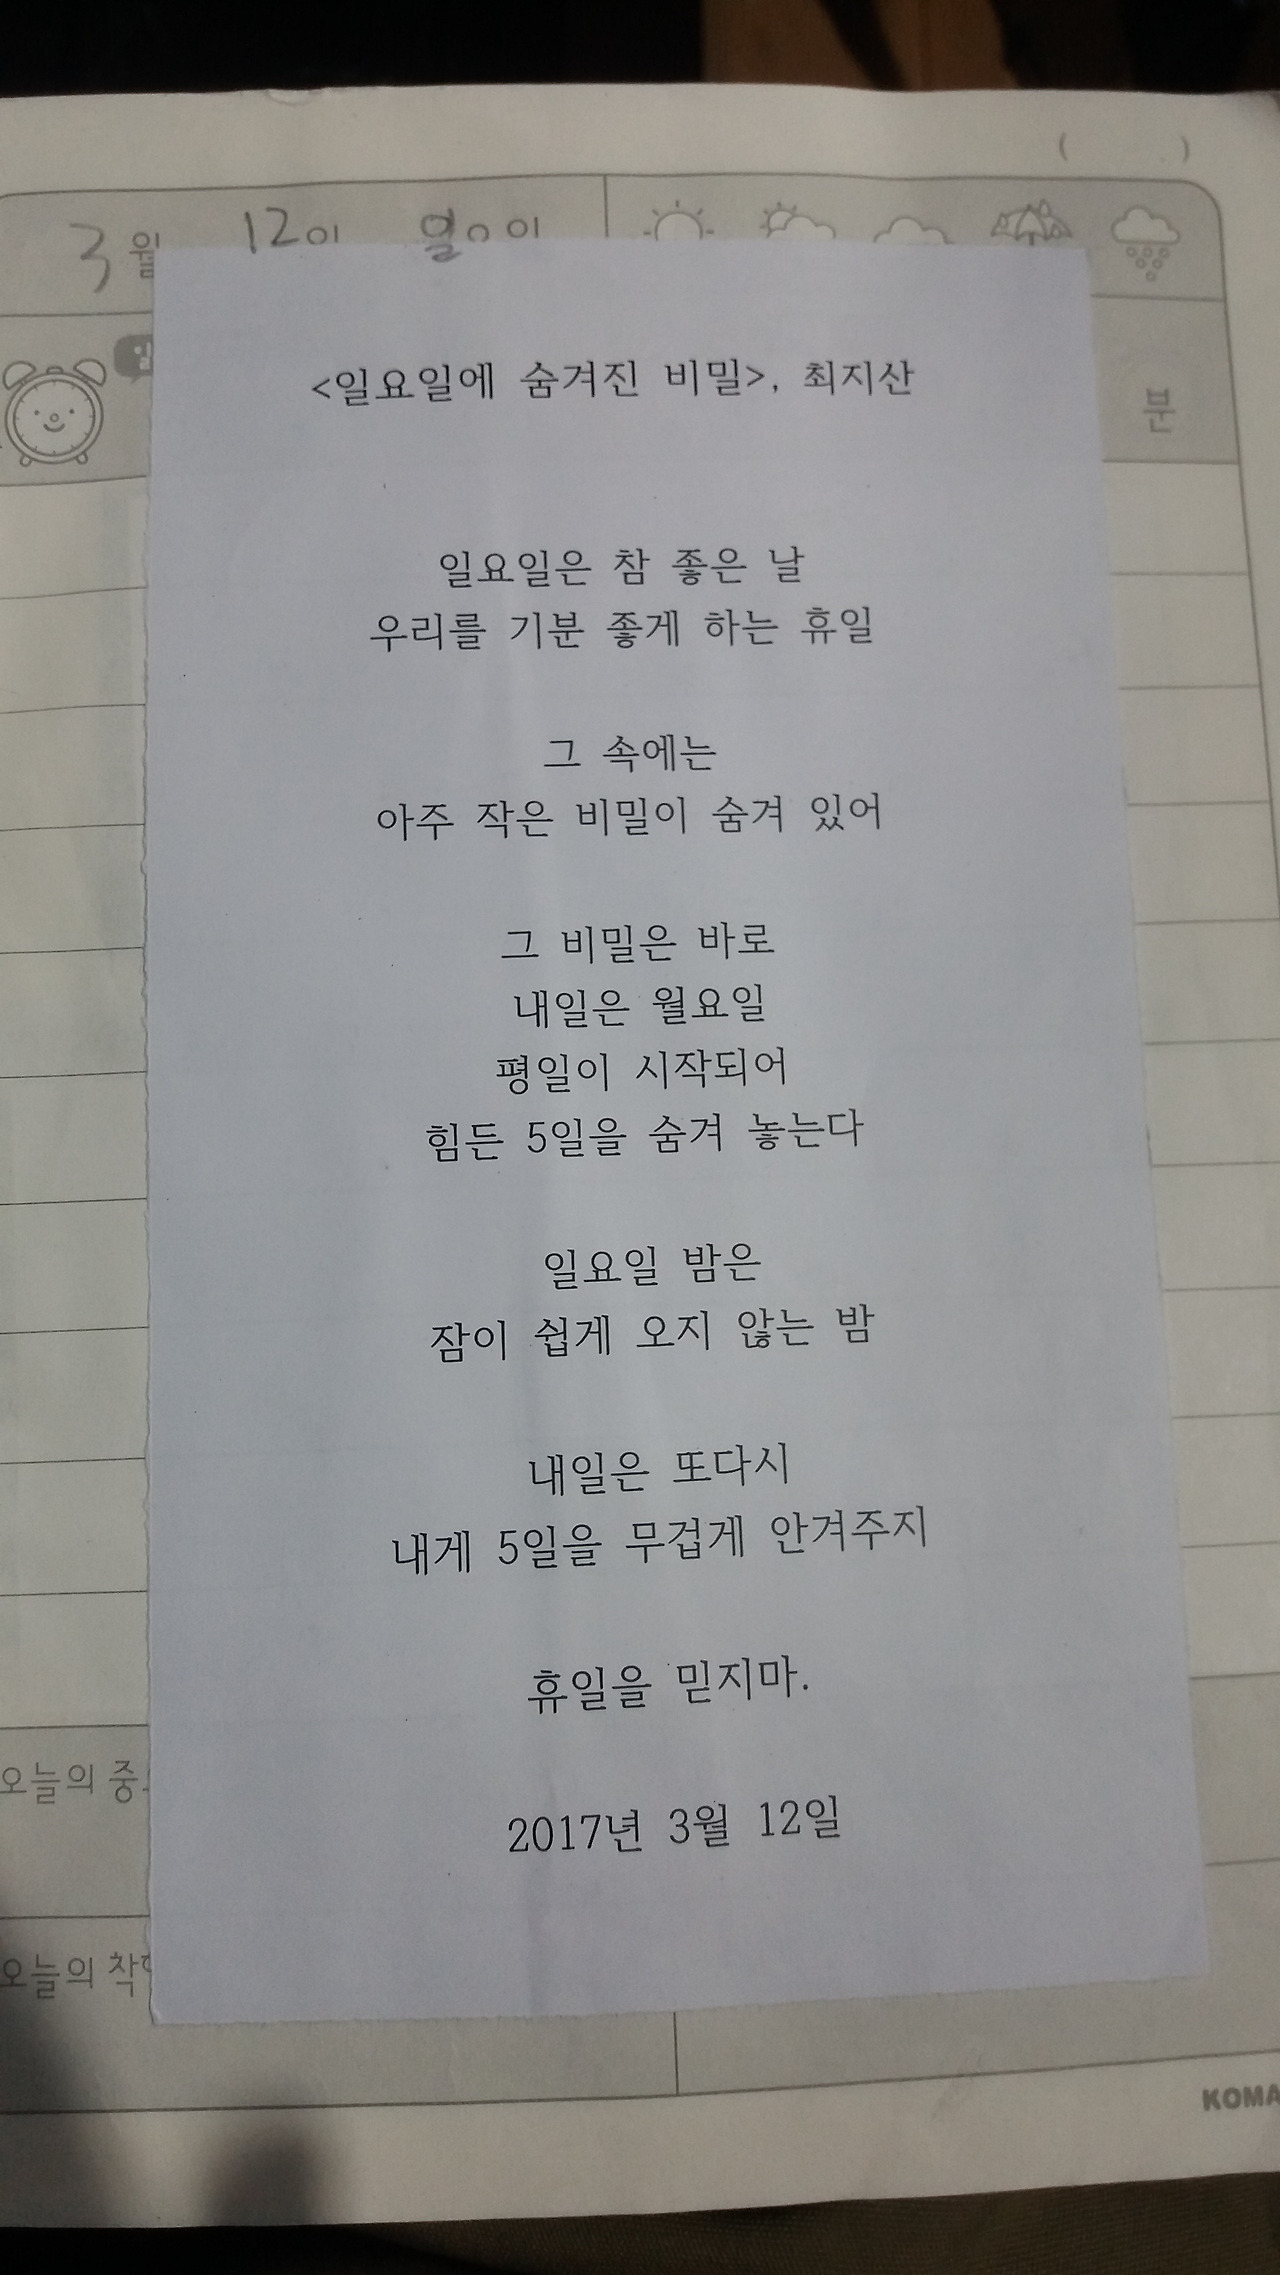 3월 12
<일요일에 숨겨진 비밀>, 최지산
분
일요일은 참 좋은 날
우리를 기분 좋게 하는 휴일
그 속에는
아주 작은 비밀이 숨겨 있어
그 비밀은 바로
내일은 월요일
평일이 시작되어
힘든 5일을 숨겨 놓는다
일요일 밤은
잠이 쉽게 오지 않는 밤
내일은 또다시
내게 5일을 무겁게 안겨주지
휴일을 믿지마.
2017년 3월 12일
오늘의
오늘의